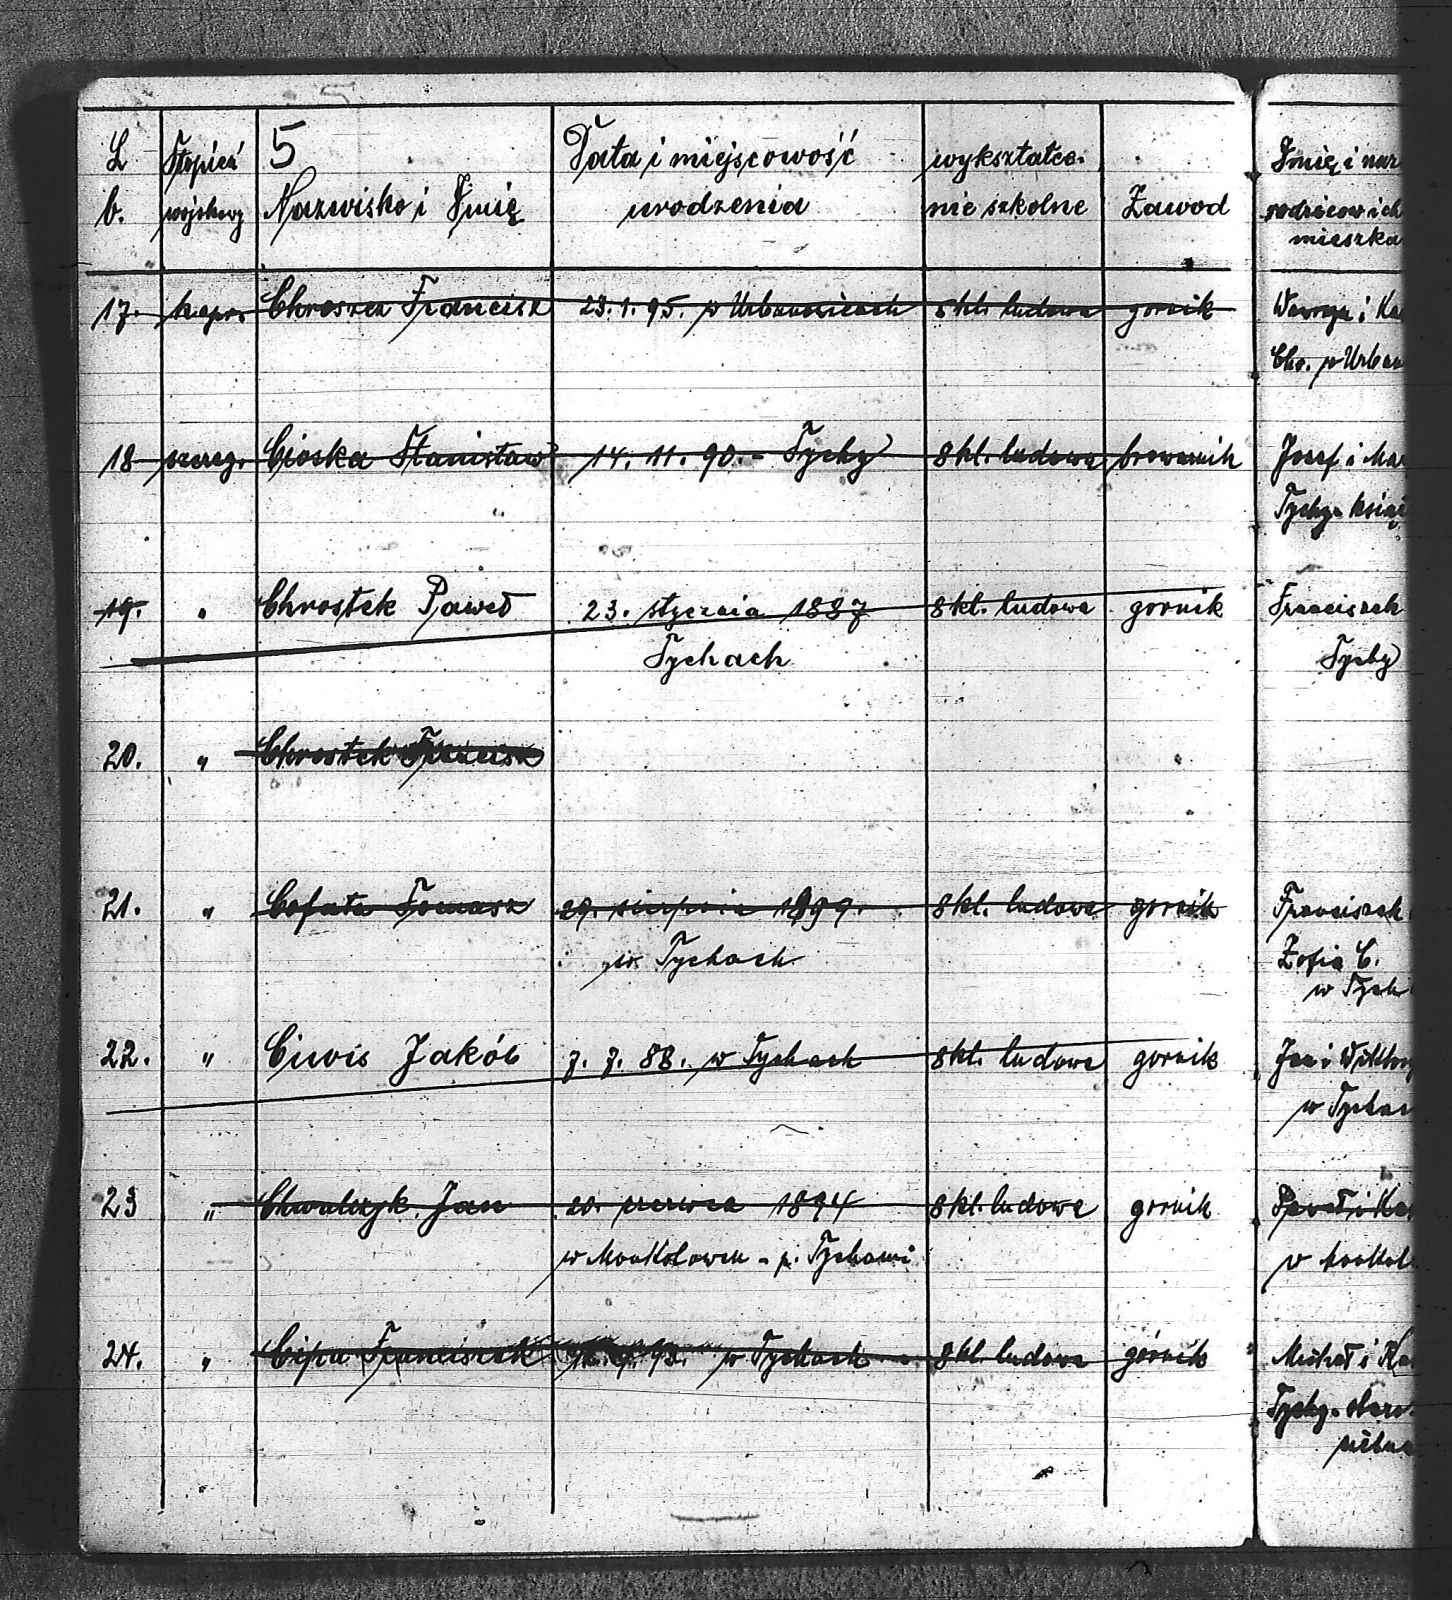 5
L b. Stopień wojskowy Nazwisko i Imię Data i miejscowość urodzenia wykształce- nie szkolne Zawod Imię i naz rodzicow ich mieszka
17. kapr. Chroszcz Francisz 23. 1. 95. w Urbanowicach 8 kl. ludowa gornik Wawrzyn i Ka
Cho. w Urban
18 szereg. Cioska Stanisław 14. 11. 90. - Tychy 8 kl. ludowa browarnik Jozef i Mar
Tychy książ
19. " Chrostek Paweł 23. stycznia 1887 8 kl. ludowa gornik Franciszek
Tychach Tychy
20. " Chrostek Francisz
21. " Cofała Tomasz 29. sierpnia 1899. 8 kl. ludowa gornik Franciszek
w. Tychach Zofia C.
w Tych
22. " Ciwis Jakób 7. 7. 88. w Tychach 8 kl. ludowa gornik Jan i Wiktory
w Tychac
23 " Chwalczyk Jan 20. czerwca 1894 8 kl. ludowa gornik Paweł i Ka
w Mąkołowcu - p. Tychami w Mąkoł
24. " Cipa Franciszek 93. w Tychach 8 kl. ludowa górnik Michał i Ka
Tychy